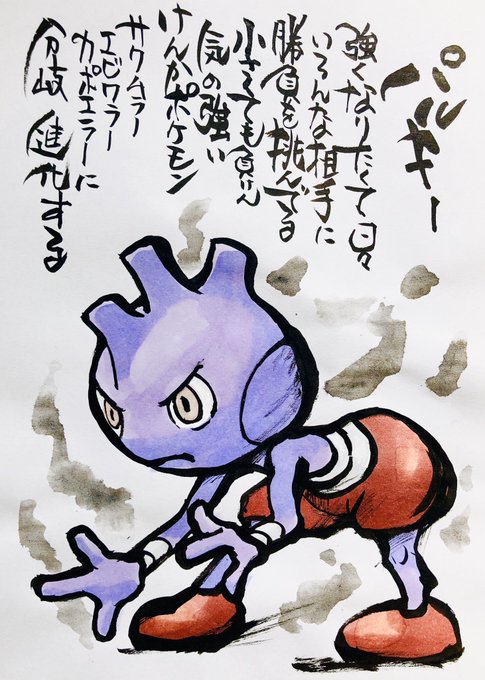 バルキー
強くなりたくて日々
いろんな相手に
勝負を挑んでる
小さくても負けん
気の強い
けんかポケモン
サワムラー
エビワラー
カポエラーに
分岐進化する